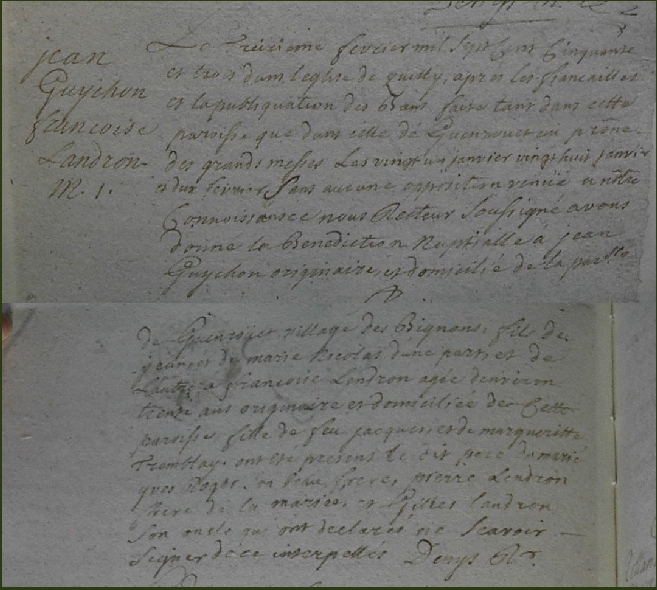 jean
Guychon
francoise
Landron
M. 1.
Le treizieme fevrier mil Sept Cens Cinquante
et trois dans l'eglise de quilly, apres les fiancailles
et la publiquation des Bans faite tant dans cette
paroisse que dans celle de Guenrouet au prône
des grands messes Les vingt un janvier vingt huit janvier
et deux fevrier Sans aucune opposition venüe a nôtre
Connoissance nous Recteur Soussigné avons
donné la Benediction Nuptialle á jean
Guychon originaire et domicilié de la parsse
de Guenrouet village des Bignons, fils de
jean et de marie Nicolas d'une part, et de
L'autre a francoise Lendron agée d'environ
trente ans originaire et domiciliée de Cette
paroisse fille de feu jacques et de margueritte
Tremblay. ont été presens le dit pere du marié
yves Roger son beau frere, pierre Lendron
frere de la mariée, et Gilles landron
Son oncle qui ont declarés ne Scavoir
Signer de ce interpelles Denys Rr.